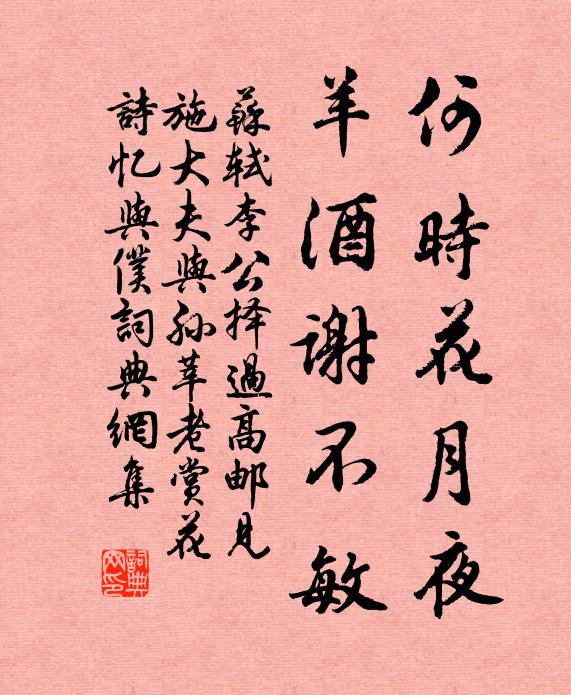 何時花月夜
羊酒謝不敏
蘇軾李公择過高邮見
施大夫與孙莘老賞花
詩忆與僕詞典網集
詞典
网印